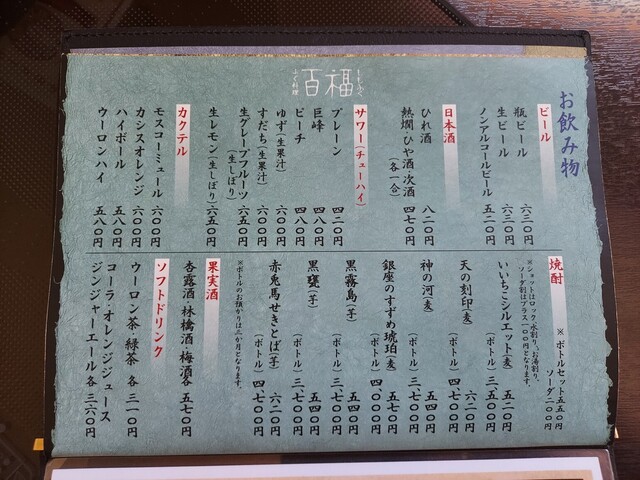 百福
お飲み物
ビール
瓶ビール 六三〇円
生ビール 六三〇円
ノンアルコールビール 五二〇円
日本酒
ひれ酒 八二〇円
熱燗・ひや酒・次酒(各一合) 四七〇円
サワー(チューハイ)
プレーン 四二〇円
巨峰 四八〇円
ピーチ 四八〇円
ゆず(生果汁) 六〇〇円
すだち(生果汁) 六〇〇円
生グレープフルーツ(生しぼり) 六五〇円
生レモン(生しぼり) 六五〇円
カクテル
モスコーミュール 六〇〇円
カシスオレンジ 六〇〇円
ハイボール 五八〇円
ウーロンハイ 五八〇円
焼酎
※ボトルセット 五五〇円
ソーダ 二〇〇円
※ショットはロック、水割り、お湯割り、
ソーダ割はプラス一〇〇円となります。
いいちこシルエット(麦) 五二〇円
(ボトル) 三、五〇〇円
天の刻印(麦) 六二〇円
(ボトル) 四七〇〇円
神の河(麦) 五四〇円
(ボトル) 三、七〇〇円
銀座のすずめ琥珀(麦) 五七〇円
(ボトル) 四〇〇〇円
黒霧島(芋) 五四〇円
(ボトル) 三、七〇〇円
黒甕(芋) 五四〇円
(ボトル) 三、七〇〇円
赤兎馬せきとば(芋) 六二〇円
(ボトル) 四七〇〇円
※ボトルのお預かりは三か月となります。
果実酒
杏露酒・林檎酒・梅酒 各 五七〇円
ソフトドリンク
ウーロン茶 緑茶 各 三一〇円
コーラ・オレンジジュース
ジンジャーエール 各 三六〇円